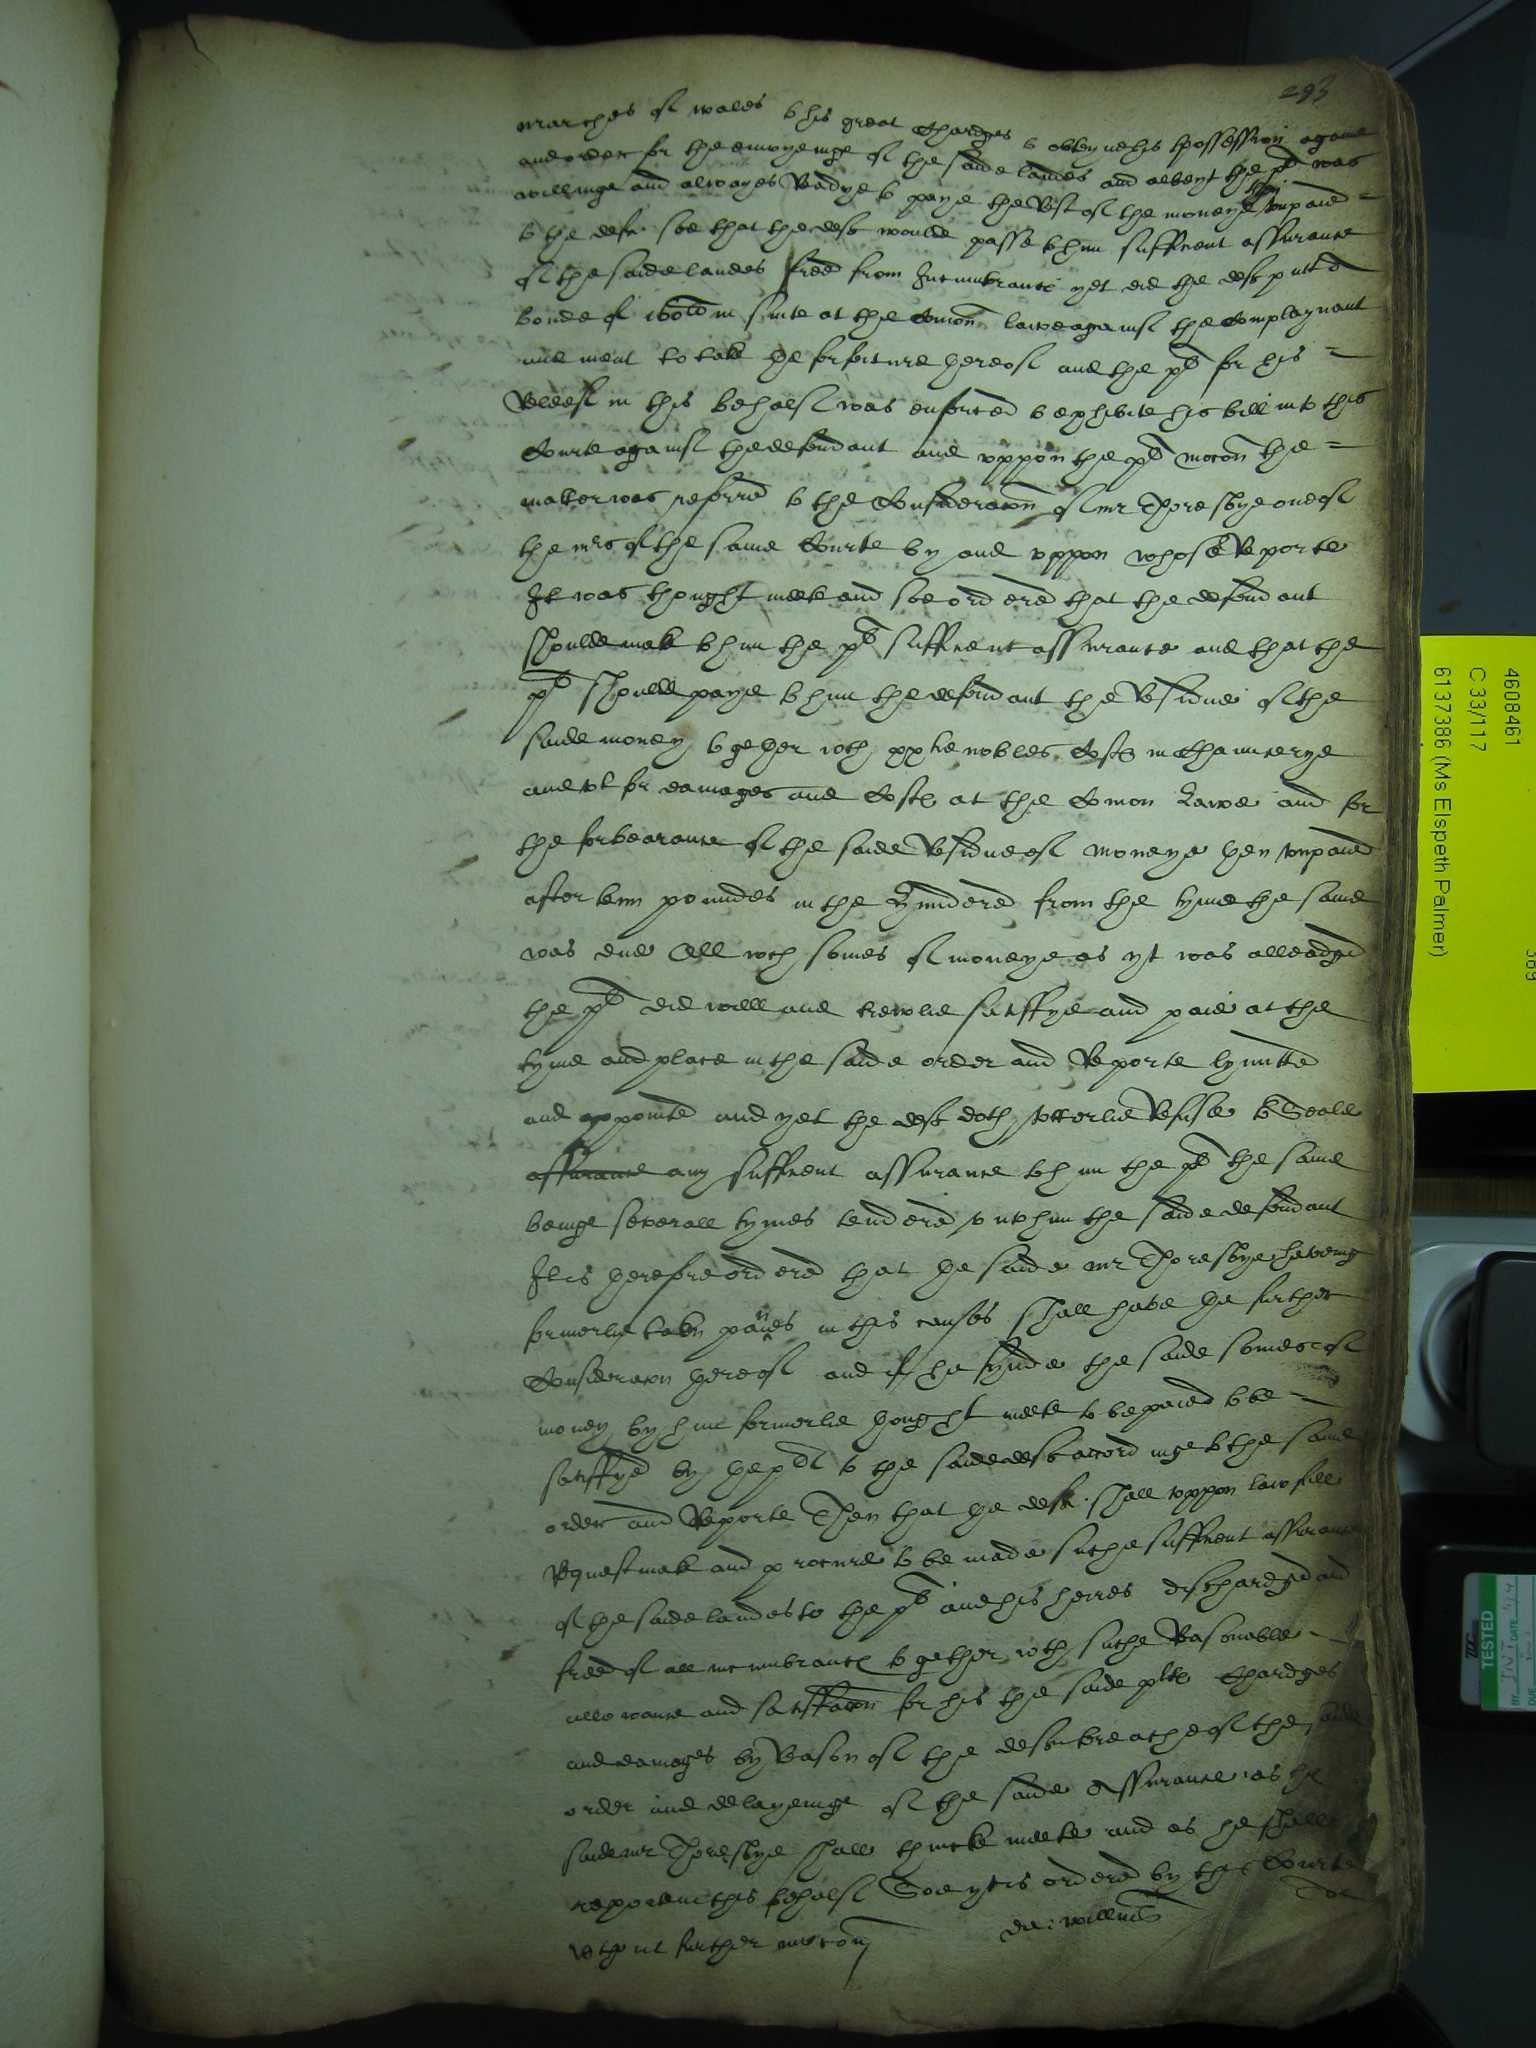 293
marches of wales to his great Chardges to obteyne his possession agame
and order for the enioyeinge of the saide landes and albeyt the plt was
willinge and alwayes Redye to paye the Rest of the moneye then vnpaied
to the deft soe that the deft woulde passe to him sufficient assurance
of the saide landes freed from Incumbrances yet did the deft putt
bonde of in suite at the Comon lawe against the Complaynant
and ment to take the forfeture thereof and the plt for his
Releef in this behalf was enforced to exhibite his bill into this
Courte against the defendant and vppon the plt mocon the
matter was referred to the Consideracon of mr Thoresbye one of
the mrs of the same Courte by and vppon whose Reporte
It was thought meete and soe ordered that the defendant
shoulde make to him the plt sufficient assurance and that the
plt shoulde paye to him the defendant the Residue of the
saide money together wth nobles Costs in Chauncerye
and for damages and Costs at the Comon Lawe and for
the forbearance of the saide Residue of moneye then vnpaied
after tenn poundes in the hundered from the tyme the same
was due All wch somes of moneye as yt was alleadged
the plt did well and trewlie satisfye and paie at the
tyme and place in the saide order and Reporte lymitted
and appointed and yet the deft doth vtterlie Refuse to Seale
assurance any sufficient assurance to him the plt the same
beinge severall tymes tendered vnto him the saide defendant
It is therefore ordered that the saide mr Thoresbye haveing
formerlie taken paines in this causes shall have the further
Consideracon thereof and if he fynde the saide somes of
money by him formerlie thought meete to be paied to be
satisfyed by the plt to the saide deft accordinge to the same
order and Reporte Then that the deft shall vppon lawfull
Request make and procure to be made suche sufficient assurance
of the saide landes to the plt and his heires dischardged and
freed of all incumbrances together wth suche Reasonable
allowance and satisfaccon for his the saide plts Chardges
and damages by Reason of the defts breache of the saide
order and delayeinge of the saide Assurance as the
saide mr Thoresbye shall thincke meete and as he shall
reporte in this behalf Soe yt is ordered by this Courte
wthout further mocon
4608461
C 33/17
6137386 (Ms Elspeth Palmer)
369
TESTED
BY
DATE
DUE